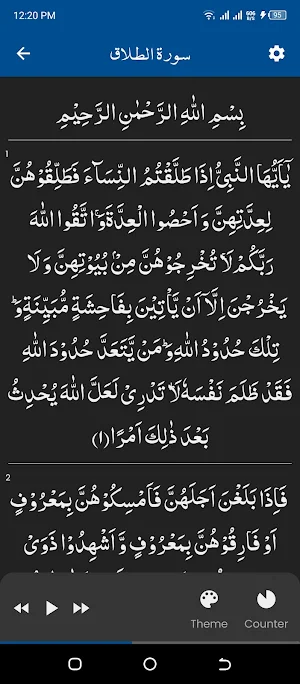 12:20 PM
95
سورة الطلاق
بِسْمِ اللّٰهِ الرَّحْمٰنِ الرَّحِيْمِ
1
يٰۤاَيُّهَا النَّبِيُّ اِذَا طَلَّقْتُمُ النِّسَآءَ فَطَلِّقُوْهُنَّ
لِعِدَّتِهِنَّ وَ اَحْصُوا الْعِدَّةَ ۚ وَ اتَّقُوا اللّٰهَ
رَبَّكُمْ ۚ لَا تُخْرِجُوْهُنَّ مِنْۢ بُيُوْتِهِنَّ وَ لَا
يَخْرُجْنَ اِلَّاۤ اَنْ يَّاْتِيْنَ بِفَاحِشَةٍ مُّبَيِّنَةٍ ؕ وَ
تِلْكَ حُدُوْدُ اللّٰهِ ؕ وَ مَنْ يَّتَعَدَّ حُدُوْدَ اللّٰهِ
فَقَدْ ظَلَمَ نَفْسَهٗ ؕ لَا تَدْرِيْ لَعَلَّ اللّٰهَ يُحْدِثُ
بَعْدَ ذٰلِكَ اَمْرًا (۱)
2
فَاِذَا بَلَغْنَ اَجَلَهُنَّ فَاَمْسِكُوْهُنَّ بِمَعْرُوْفٍ
اَوْ فَارِقُوْهُنَّ بِمَعْرُوْفٍ وَّ اَشْهِدُوْا ذَوَيْ
Theme
Counter